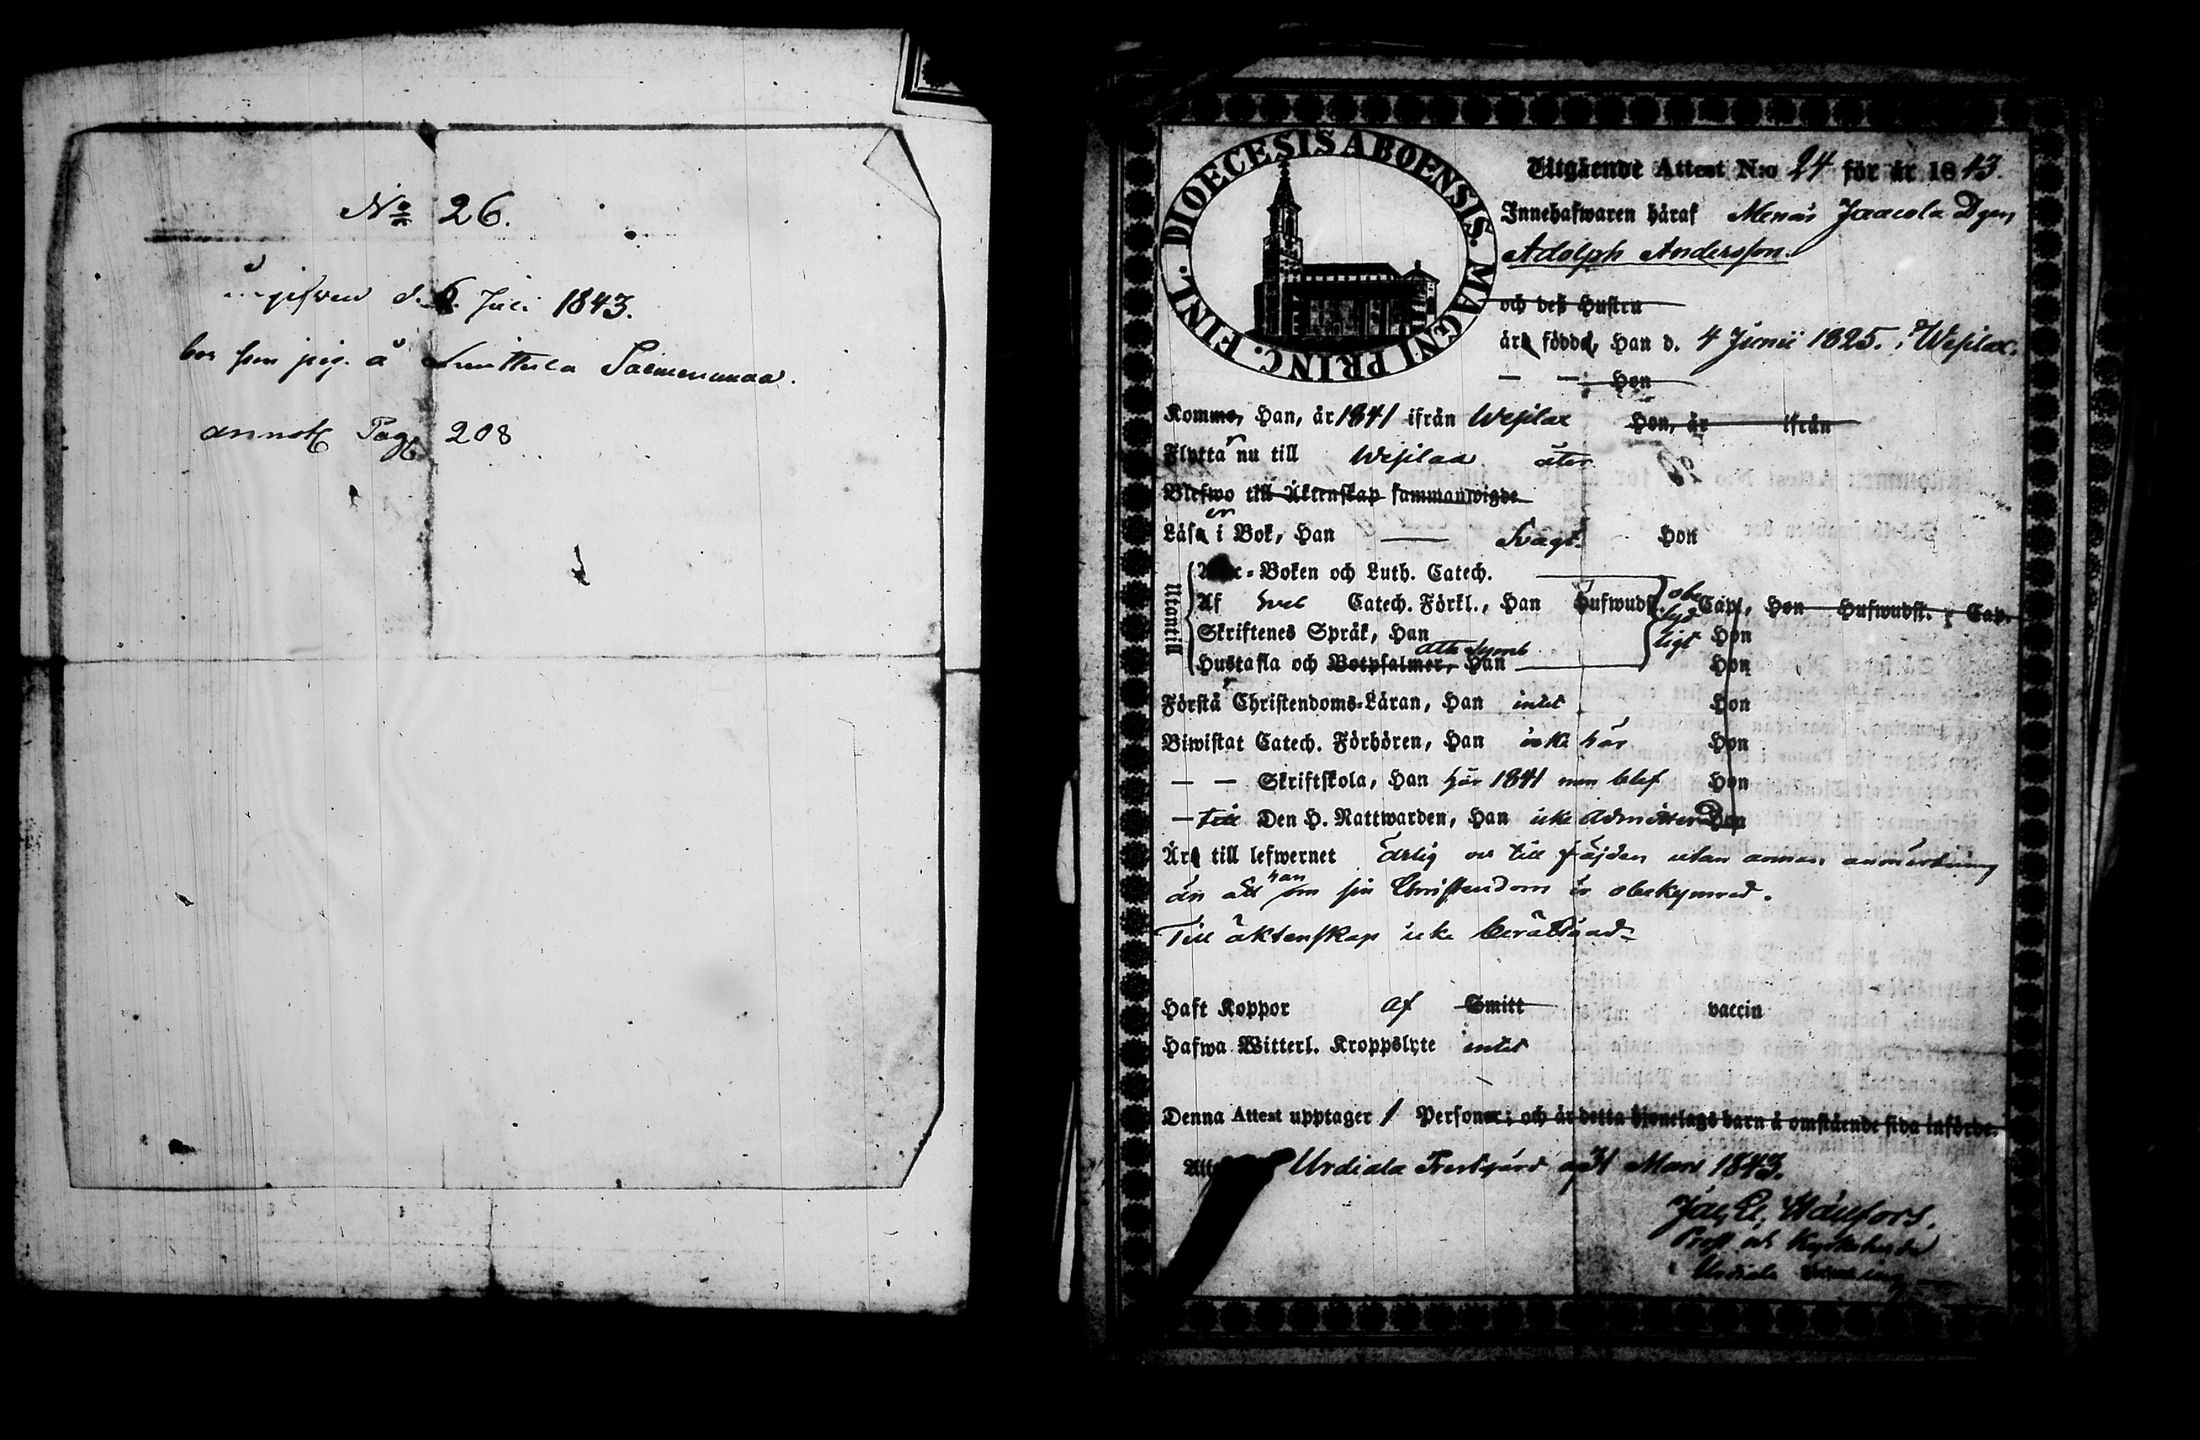 No 26.
d. 6. Juli 1843.
bor hos pig. å Salmenmaa.
annot Pag 208
DIOECESIS ABOENSIS. MAGNI PRINC. FINL.
Utgående Attest N:o 24 för år 1843.
Innehafwaren häraf Menos Jaacola Dgen,
Adolph Andersson.
och deß Hustru
äro födde, Han d. 4 Junii 1825. i Wesilax.
— — Hon
Komme, Han, år 1841 ifrån Wesilax Hon, år ifrån
Flytta r nu till Wesilax åter
Blefwo till Äktenskap sammanwigde
Läsa er i Bok, Han — Svagt. Hon
Utantill
Abc-Boken och Luth. Catech.
Af Sveb Catech. Förkl., Han Hufwudst. Cap., Hon Hufwudst. Cap.
Skriftenes Språk, Han Hon
obe
tyd
ligt
Hustafla och Botpsalmer, Ath Symb Han Hon
Förstå r Christendoms-Läran, Han intet Hon
Biwistat Catech. Förhören, Han icke här Hon
— — Skriftskola, Han här 1841 men blef Hon
— till Den H. Nattwarden, Han icke admitterad Hon
Äro till lefwernet ärlig och till fräjden utan annan anmärkning
än att han om sin Christendom är obekymrad.
Till äktenskap icke berättigad.
Haft Koppor af Smitt vaccin
Hafwa Witterl. Kroppslyte intet
Denna Attest upptager 1 Personer; och är detta hjonelags barn å omstående sida införde.
Urdiala Prestgård d. 31 Mars 1843.
Prost och Kyrkoherde
i Urdiala